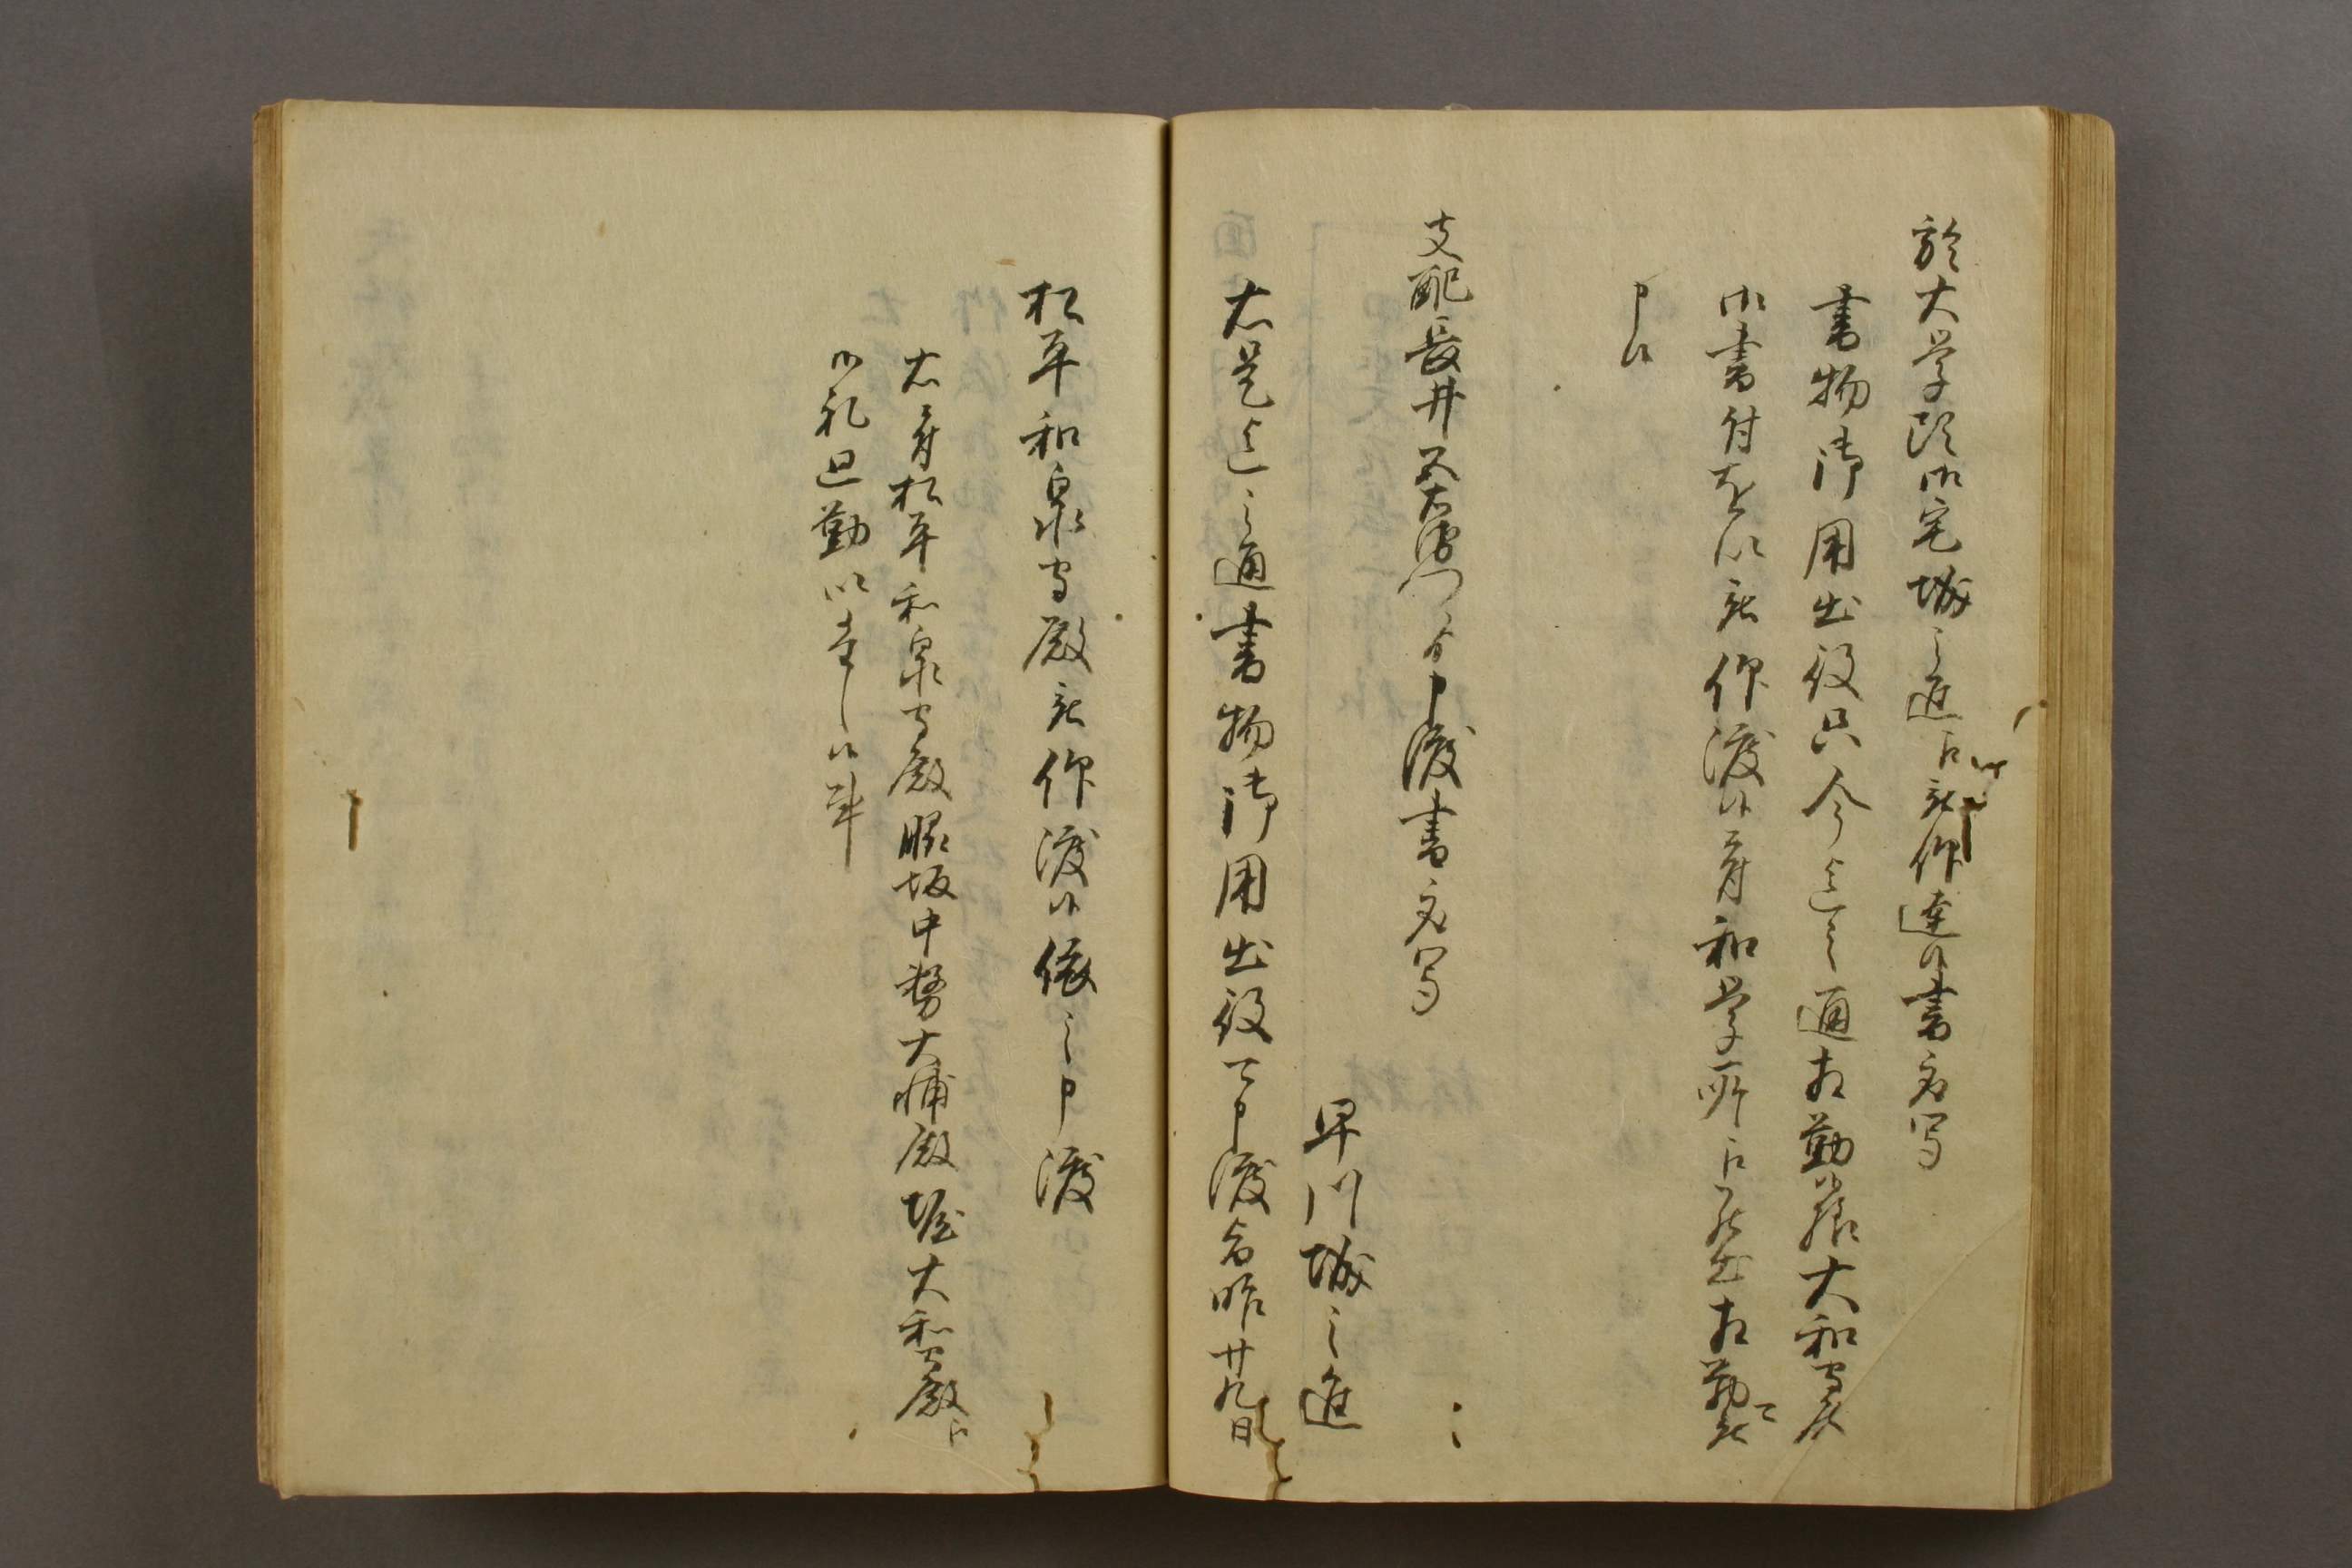 於大学頭御宅城之進江被仰達候書面写
書物御用出役只今迄之通相勤候様大和守殿
御書付を以被仰渡候旨和学所江罷出相勤可被
申候
支配長井五右衛門より申渡書面写
早川城之進
右是迄之通書物御用出役可申渡旨昨廿九日
松平和泉守殿被仰渡候依之申渡
右ニ付松平和泉守殿脇坂中務大輔殿堀大和守殿江
御礼廻勤いたし候事